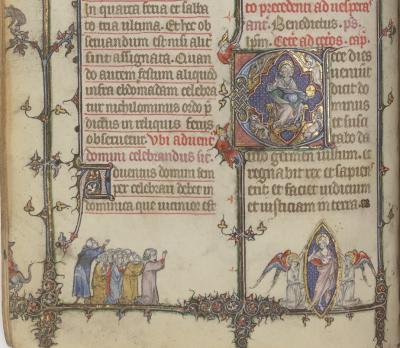 In quarta feria et saba
to tria ultima. Et hec ob
seruandum est nisi alit
sint assignata. Quan
do autem festum aliquod
infra ebdomadam celebra
tur nichilominus ordo p
dictus in reliquis feriis
obseruetur. Ubi aduent
domini celebrandus sit.
Aduentus domini sem
per celebrari debet in
dominica que uicinior est
to precedenti ad uesperas
ant. Benedictus. ps.
ipm. Ecce ad epos. cap.
Ecce dies
ueniunt
dicit do
minus
et susci
tabo da
uid germen iustum. et
regnabit rex et sapiens
erit et faciet iudicium
et iusticiam in terra.